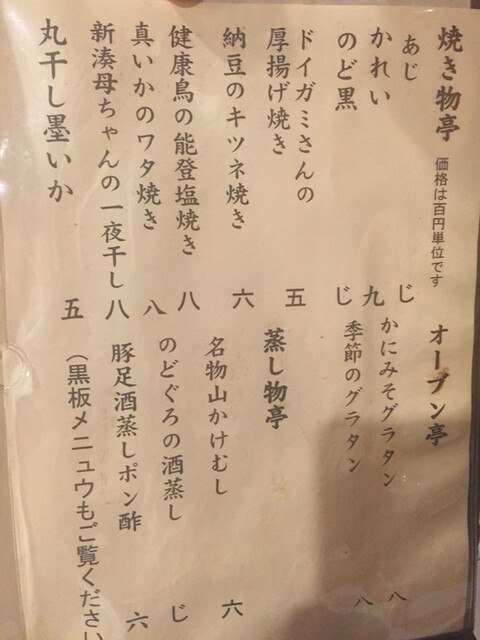 焼き物亭 価格は百円単位です
あじ じ
かれい 九
のど黒 じ
ドイガミさんの
厚揚げ焼き 五
納豆のキツネ焼き 六
健康鳥の能登塩焼き 八
真いかのワタ焼き 八
新湊母ちゃんの一夜干し 八
丸干し墨いか 五
オーブン亭
かにみそグラタン 八
季節のグラタン 八
蒸し物亭
名物山かけむし 六
のどぐろの酒蒸し じ
豚足酒蒸しポン酢 六
（黒板メニュウもご覧ください